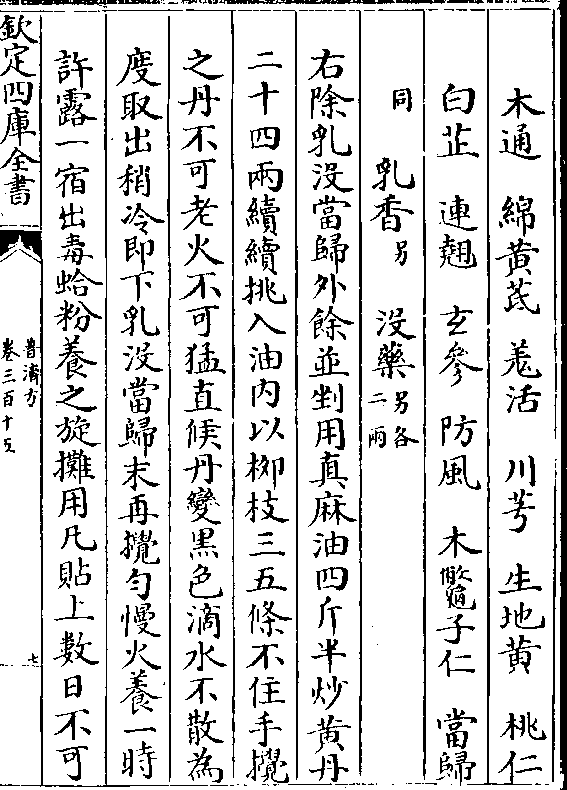 木通　綿黄芪　羗活　川芎　生地黄　桃仁
白芷　連翹　玄參　防風　木鱉子仁　當歸
同　乳香另　没藥另各二兩
右除乳没當歸外餘並剉用真麻油四斤半炒黄丹
二十四兩續續挑入油内以柳枝三五條不住手攪
之丹不可老火不可猛直候丹變黑色滴水不散為
度取出稍冷即下乳没當歸末再攪勻慢火養一時
許露一宿出毒蛤粉養之旋攤用凡貼上數日不可
欽定四庫全書
普濟方
卷三百十五
七